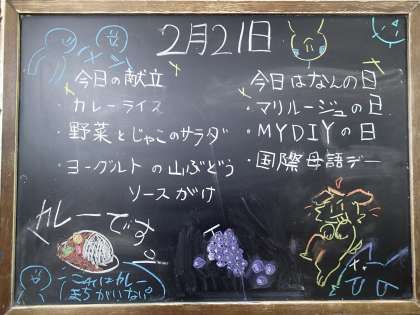 2月21日
今日の献立
・カレーライス
・野菜とじゃこのサラダ
・ヨーグルトの山ぶどう
ソースがけ
今日はなんの日
・マリルージュの日
・MYDIYの日
・国際母語デー
カレーです。
これはカレー
まちがいない